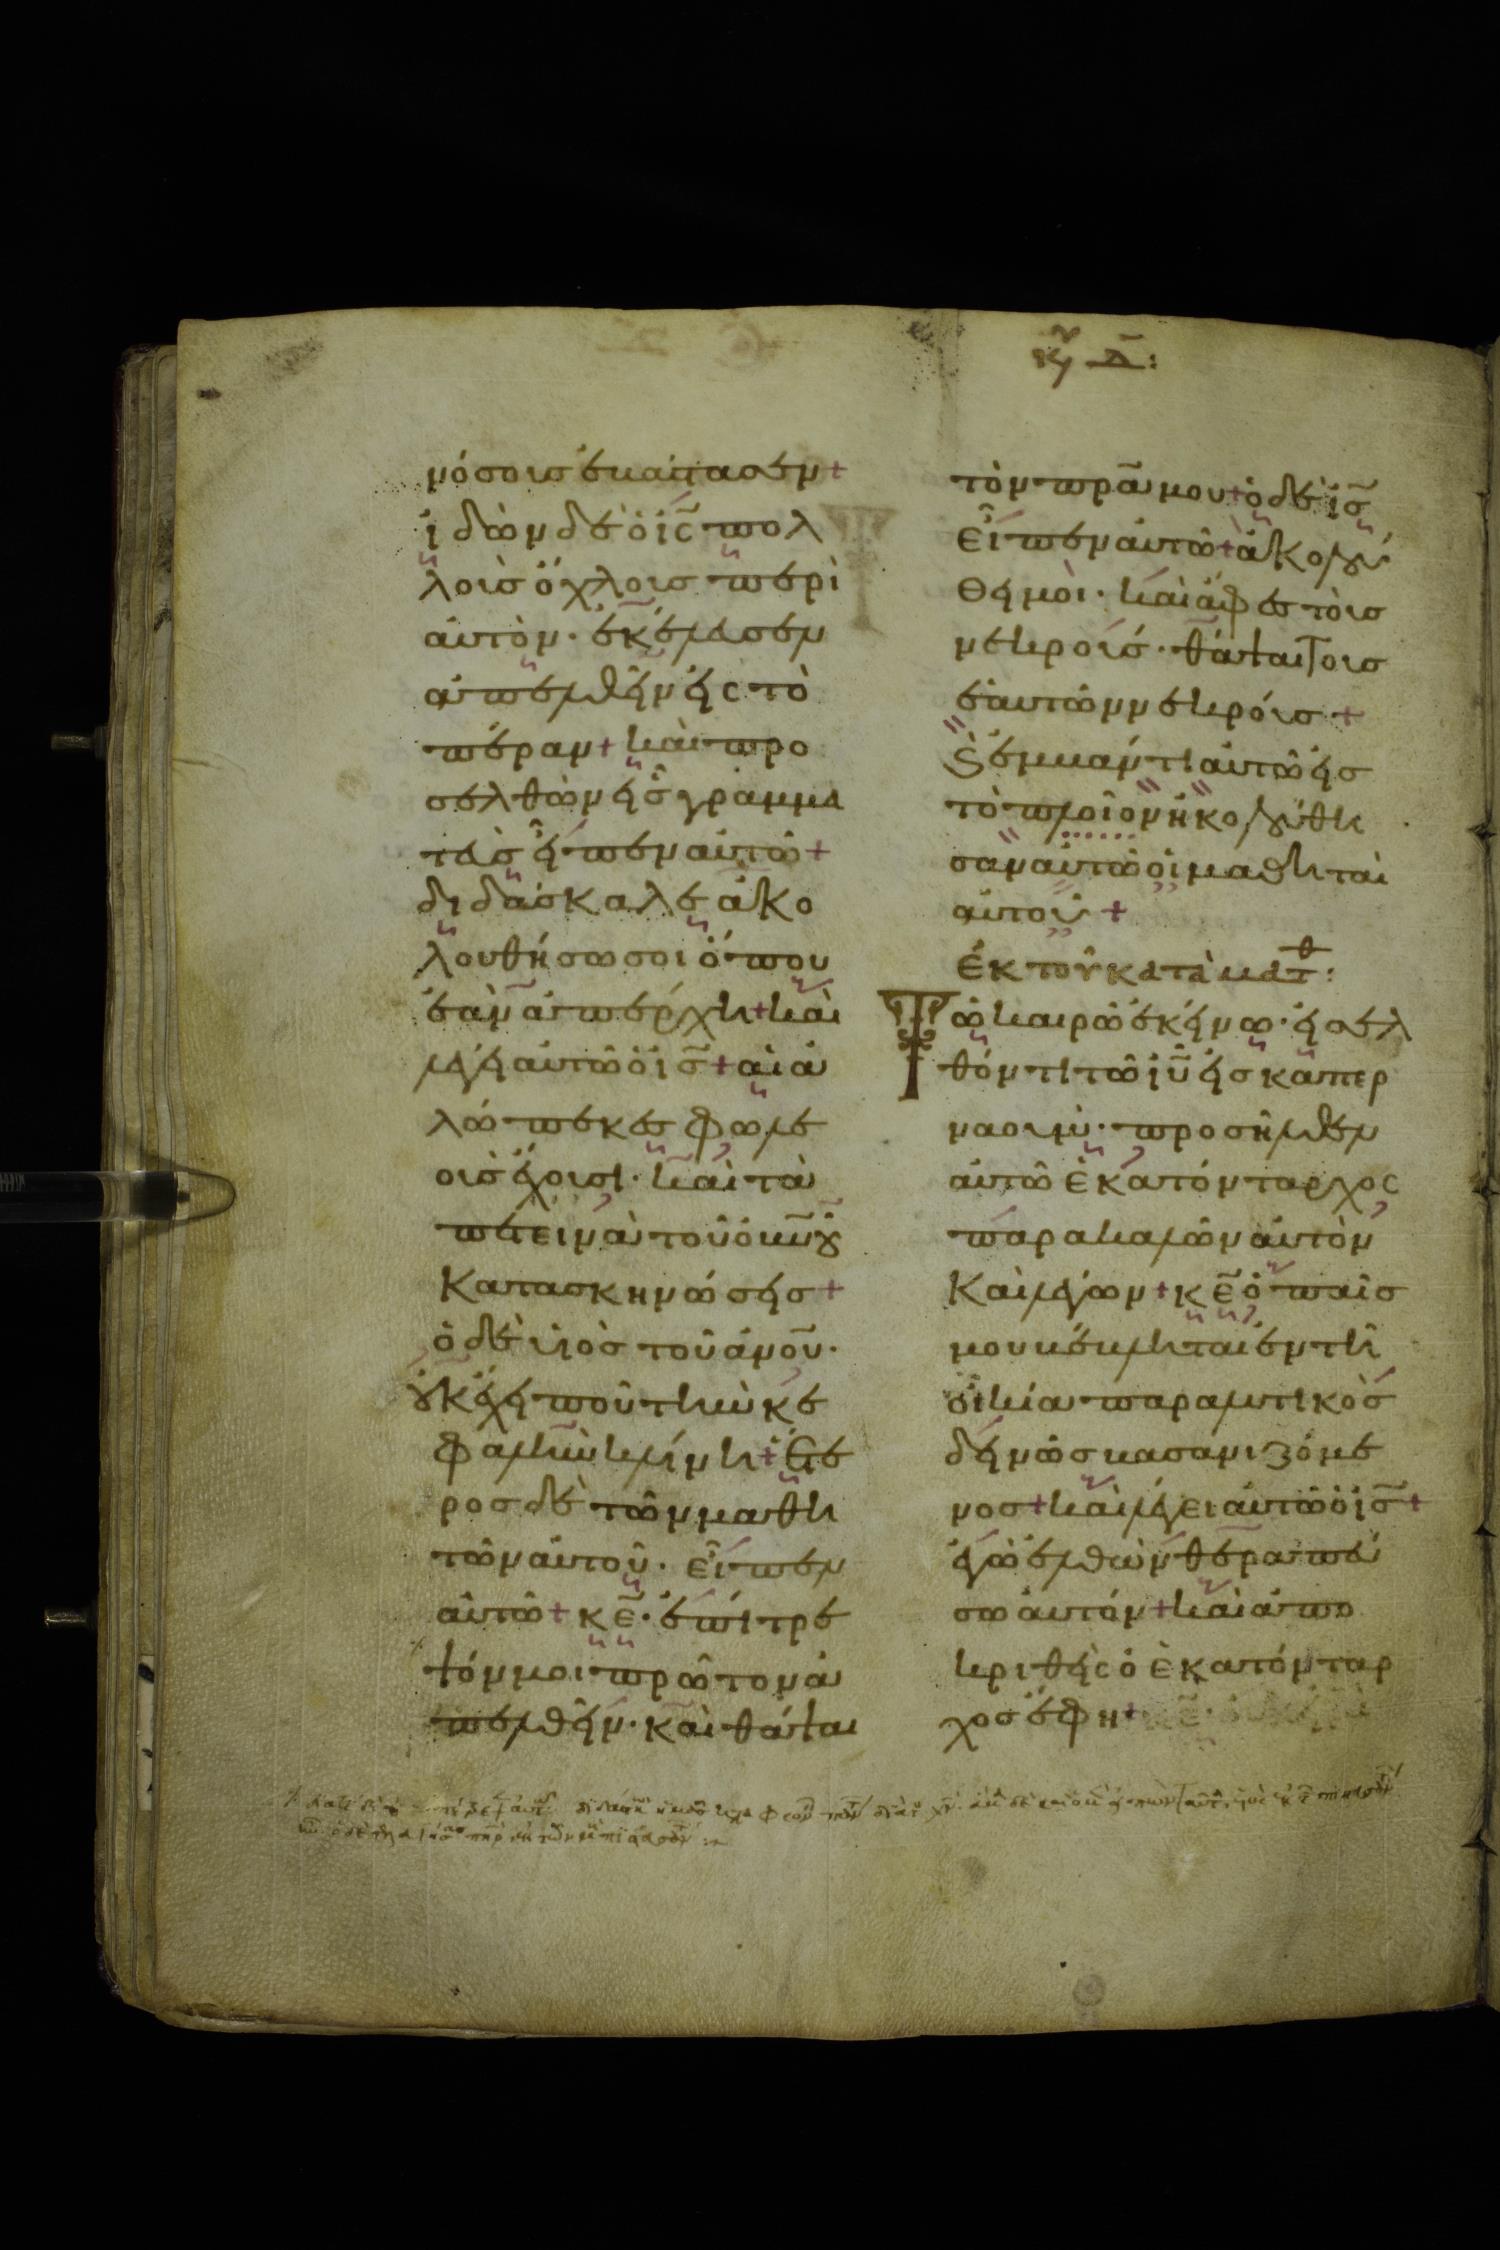 κυ Δ:
νόσοις ἐβάστασεν+
ἰδὼν δὲ ὁ ις πολ
λοὺς ὄχλους περὶ
αὐτὸν· ἐκέλευσεν
ἀπελθεῖν εἰς τὸ
πέραν+ καὶ προ
σελθὼν εἷς γραμμα
τεὺς εἶπεν αὐτῶ+
διδάσκαλε ἀκο
λουθήσω σοι ὅπου
ἐὰν ἀπέρχη+ καὶ
λέγει αὐτῶ ὁ ις+ αἱ ἀ
λώπεκες φωλε
οὺς ἔχουσι· καὶ τὰ
πετεινὰ τοῦ ουνου
κατασκηνώσεις+
ὁ δὲ υἱὸς τοῦ ανου·
οὐκ ἔχει ποῦ τὴν κε
φαλὴν κλίνη+ ἕτε
ρος δὲ τῶν μαθη
τῶν αὐτοῦ· εἶπεν
αὐτῶ+ κε· ἐπίτρε
ψόν μοι πρῶτον ἀ
πελθεῖν· καὶ θάψαι
τὸν πρα μου+ ὁ δὲ ις
εἶπεν αὐτῶ+ ἀκολού
θει μοι· καὶ ἄφες τοὺς
νεκροὺς· θάψαι τοὺς
ἑαυτῶν νεκρούς+
Ἐμβάντι αὐτῶ εἰς
τὸ πλοῖον ἠκολούθη
σαν αὐτῶ οἱ μαθηταὶ
αὐτοῦ+
ἐκ τοῦ κατὰ ματθ:
Τῶ καιρῶ ἐκείνω· εἰσελ
θόντι τῶ ιυ εἰς καπερ
ναούμ· προσῆλθεν
αὐτῶ ἑκατόνταρχος
παρακαλῶν αὐτὸν
καὶ λέγων+ κε ὁ παῖς
μου βέβληται ἐν τῆ
οἰκία παραλυτικὸς
δεινῶς βασανιζόμε
νος+ καὶ λέγει αὐτῶ ὁ ις+
ἐγὼ ἐλθὼν θεραπεύ
σω αὐτόν+ καὶ ἀπο
κριθεὶς ὁ ἑκατόνταρ
χος ἔφη+ κε·